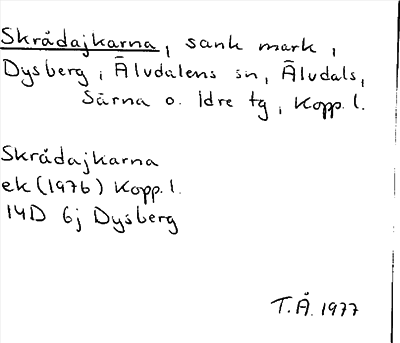 Skrådajkarna, sank mark i
Dysberg i Älvdalens sn, Älvdals,
Särna o. Idre tg, Kopp. l.
Skrådajkarna
ek (1976) Kopp. l.
14D 6j Dysberg
T.Å. 1977